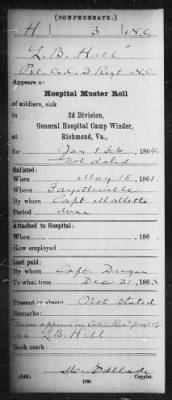 (CONFEDERATE.)
H 3 N.C.
L. B. Hall
Pvt. Co. C. 3 Regt N.C.
Appears on
Hospital Muster Roll
of soldiers, sick
in 2d Division,
General Hospital Camp Winder,
Richmond, Va.,
for Jan & Feb, 1864.
not dated
Enlisted:
When May 15, 1861.
Where Fayetteville
By whom Capt Mallette
Period War
Attached to Hospital:
When , 186 .
How employed
Last paid:
By whom Capt
To what time Dec 31, 1863.
Present or absent Not Stated
Remarks:
Name appears in
as L. B. Hill
Book mark:
(645)
Copyist.